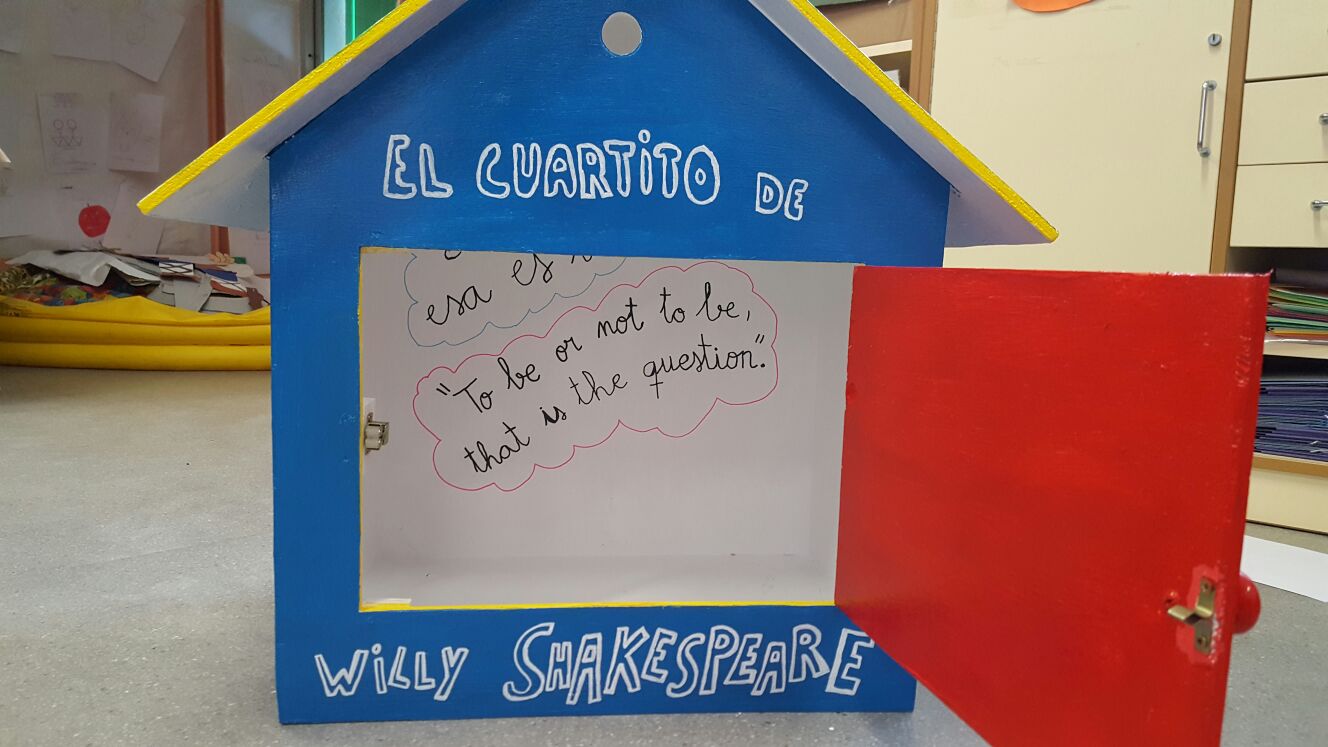 EL CUARTITO DE
esa es
"To be or not to be,
that is the question".
WILLY SHAKESPEARE